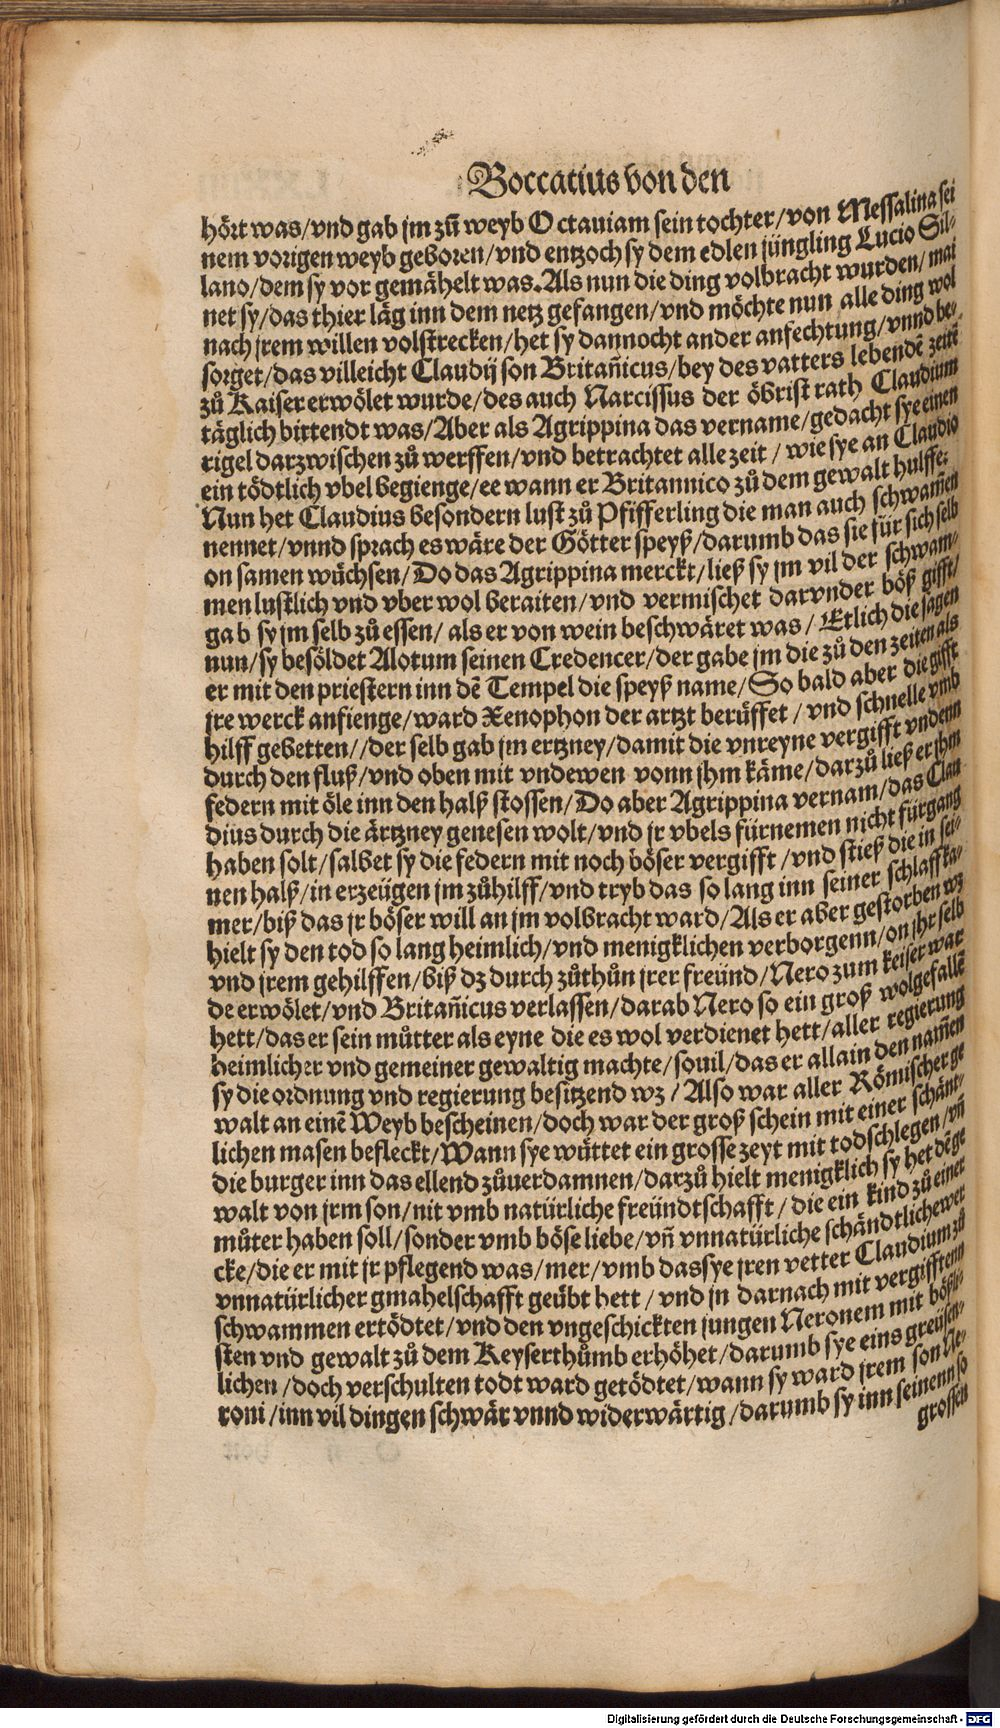 Boccatius von den
hört was/vnd gab jm zů weyb Octauiam sein tochter/von Messalina sei
nem vorigen weyb geboren/vnd entzoch sy dem edlen jüngling Lucio Sil-
lano/dem sy vor gemähelt was.Als nun die ding volbracht wurden/mai
net sy/das thier läg inn dem netz gefangen/vnd möchte nun alle ding wol
nach jrem willen volstrecken/het sy dannocht ander anfechtung/vnnd be-
sorget/das villeicht Claudij son Britañicus/bey des vatters lebendē zeitē
zů Kaiser erwölet wurde/des auch Narcissus der öbrist rath Claudium
täglich bittendt was/Aber als Agrippina das vername/gedacht sye einen
rigel darzwischen zů werffen/vnd betrachtet alle zeit/wie sye an Claudio
ein tödtlich vbel begienge/ee wann er Britannico zů dem gewalt hulffe:
Nun het Claudius besondern lust zů Pfifferling die man auch schwam̄en
nennet/vnnd sprach es wäre der Götter speyß/darumb das sie für sich selb
on samen wüchsen/Do das Agrippina merckt/ließ sy jm vil der schwam-
men lustlich vnd vber wol beraiten/vnd vermischet darvnder böß gifft/
gab sy jm selb zů essen/als er von wein beschwäret was/Etlich die sagen
nun/sy besöldet Alotum seinen Credencer/der gabe jm die zů den zeiten als
er mit den priestern inn dē Tempel die speyß name/So bald aber die gifft
jre werck anfienge/ward Xenophon der artzt berüffet/vnd schnelle vmb
hilff gebetten//der selb gab jm ertzney/damit die vnreyne vergifft vndenn
durch den fluß/vnd oben mit vndewen vonn jhm käme/darzů ließ er jhm
federn mit öle inn den halß stossen/Do aber Agrippina vernam/das Clau
dius durch die ärtzney genesen wolt/vnd jr vbels fürnemen nicht fürgang
haben solt/salbet sy die federn mit noch böser vergifft/vnd stieß die in sei-
nen halß/in erzeügen jm zůhilff/vnd tryb das so lang inn seiner schlaffka-
mer/biß das jr böser will an jm volbracht ward/Als er aber gestorben wz
hielt sy den tod so lang heimlich/vnd menigklichen verborgenn/on jhr selb
vnd jrem gehilffen/biß dz durch zůthůn jrer freünd/Nero zum keiser war
de erwölet/vnd Britañicus verlassen/darab Nero so ein groß wolgefallē
hett/das er sein můtter als eyne die es wol verdienet hett/aller regierung
heimlicher vnd gemeiner gewaltig machte/souil/das er allain den nam̄en
sy die ordnung vnd regierung besitzend wz/Also war aller Römischer ge
walt an einē Weyb bescheinen/doch war der groß schein mit einer schänt-
lichen masen befleckt/Wann sye wüttet ein grosse zeyt mit todschlegen/vñ
die burger inn das ellend zůuerdamnen/darzů hielt menigklich sy het dē ge
walt von jrm son/nit vmb natürliche freündtschafft/die ein kind zů einer
můter haben soll/sonder vmb böse liebe/vñ vnnatürliche schändtliche wer
cke/die er mit jr pflegend was/mer/vmb das sye jren vetter Claudium zů
vnnatürlicher gmahelschafft geübt hett/vnd jn darnach mit vergifftenn
schwammen ertödtet/vnd den vngeschickten jungen Neronem mit bößli-
sten vnd gewalt zů dem Keyserthůmb erhöhet/darumb sye eins greüsen-
lichen/doch verschulten todt ward getödtet/wann sy ward jrem son Ne-
roni/inn vil dingen schwär vnnd widerwärtig/darumb sy inn seinenn so
grossen
Digitalisierung gefördert durch die Deutsche Forschungsgemeinschaft - DFG